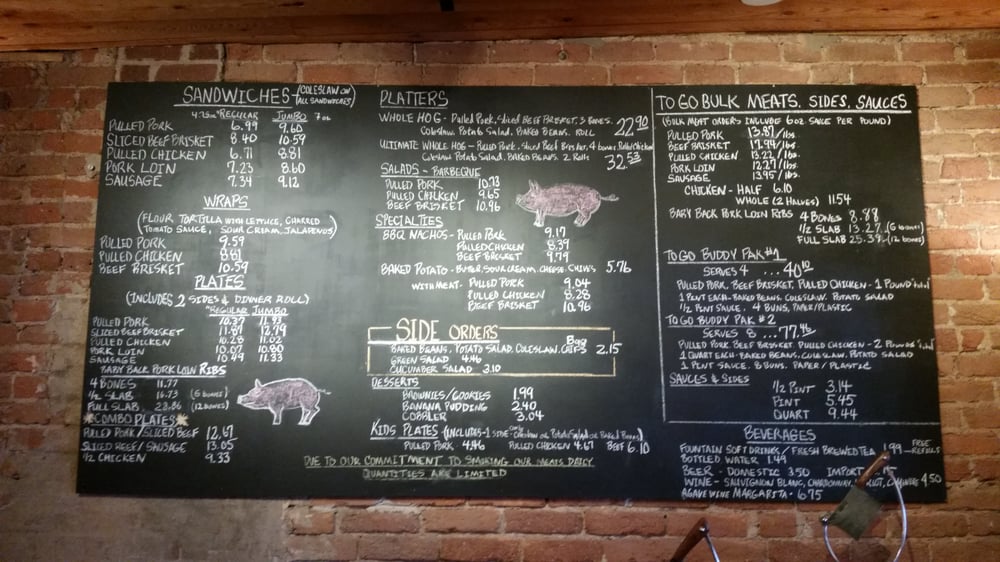 SANDWICHES - (COLESLAW ON ALL SANDWICHES)
4.75oz REGULAR JUMBO 7oz
PULLED PORK 6.99 9.60
SLICED BEEF BRISKET 8.40 10.59
PULLED CHICKEN 6.71 8.81
PORK LOIN 7.23 8.60
SAUSAGE 7.34 9.12
WRAPS
(FLOUR TORTILLA WITH LETTUCE, CHARRED
TOMATO SAUCE, SOUR CREAM, JALAPENOS)
PULLED PORK 9.59
PULLED CHICKEN 8.81
BEEF BRISKET 10.59
PLATES
(INCLUDES 2 SIDES & DINNER ROLL)
REGULAR JUMBO
PULLED PORK 10.39
SLICED BEEF BRISKET 11.87 12.79
PULLED CHICKEN 10.28 11.02
PORK LOIN 10.07 10.80
SAUSAGE 10.49 11.33
BABY BACK PORK LOIN RIBS
4 BONES 11.77
1/2 SLAB 16.73 (6 BONES)
FULL SLAB 28.86 (12 BONES)
COMBO PLATES
PULLED PORK/SLICED BEEF 12.67
SLICED BEEF/SAUSAGE 13.05
1/2 CHICKEN 9.33
PLATTERS
WHOLE HOG - Pulled Pork, Sliced Beef Brisket, 3 Bones,
Coleslaw, Potato Salad, BAKED BEANS, ROLL 22.90
ULTIMATE WHOLE HOG - Pulled Pork, Sliced Beef Brisket, 4 bones, Pulled Chicken
Coleslaw, Potato Salad, BAKED BEANS, 2 Rolls 32.53
SALADS - BARBEQUE
PULLED PORK 10.73
PULLED CHICKEN 9.65
BEEF BRISKET 10.96
SPECIALTIES
BBQ NACHOS - PULLED PORK 9.17
PULLED CHICKEN 8.39
BEEF BRISKET 9.79
BAKED POTATO - BUTTER, SOUR CREAM, CHEESE, CHIVES 5.76
WITH MEAT - PULLED PORK 9.04
PULLED CHICKEN 8.28
BEEF BRISKET 10.96
SIDE ORDERS
BAKED BEANS, POTATO SALAD, COLESLAW, CHIPS 2.15
GREEN SALAD 4.46
CUCUMBER SALAD 3.10
DESSERTS
BROWNIES/COOKIES 1.99
BANANA PUDDING 2.40
COBBLER 3.04
KIDS PLATES (INCLUDES - 1 SIDE - Coleslaw or Potato Salad or Baked Beans)
PULLED PORK 4.46 PULLED CHICKEN 4.67 BEEF 6.10
DUE TO OUR COMMITMENT TO SMOKING OUR MEATS DAILY
QUANTITIES ARE LIMITED
TO GO BULK MEATS, SIDES, SAUCES
(BULK MEAT ORDERS INCLUDE 6oz SAUCE PER POUND)
PULLED PORK 13.87/lbs.
BEEF BRISKET 17.99/lbs.
PULLED CHICKEN 13.22/lbs.
PORK LOIN 12.27/lbs.
SAUSAGE 13.95/lbs.
CHICKEN - HALF 6.10
WHOLE (2 HALVES) 11.54
BABY BACK PORK LOIN RIBS 4 BONES 8.88
1/2 SLAB 13.27 (6 bones)
FULL SLAB 25.39 (12 bones)
TO GO BUDDY PAK #1
SERVES 4 ... 40.10
PULLED PORK, BEEF BRISKET, PULLED CHICKEN - 1 POUND total
1 PINT EACH - BAKED BEANS, COLESLAW, POTATO SALAD
1/2 PINT SAUCE, 4 BUNS, PAPER/PLASTIC
TO GO BUDDY PAK #2
SERVES 8 ... 77.46
PULLED PORK, BEEF BRISKET, PULLED CHICKEN - 2 POUNDS total
1 QUART EACH - BAKED BEANS, COLESLAW, POTATO SALAD
1 PINT SAUCE, 8 BUNS, PAPER/PLASTIC
SAUCES & SIDES
1/2 PINT 3.14
PINT 5.45
QUART 9.44
BEVERAGES
FOUNTAIN SOFT DRINKS / FRESH BREWED TEA 1.99 FREE REFILLS
BOTTLED WATER 1.49
BEER - DOMESTIC 3.50 IMPORT
WINE - SAUVIGNON BLANC, CHARDONNAY, 4.50
AGAVE WINE MARGARITA - 6.75